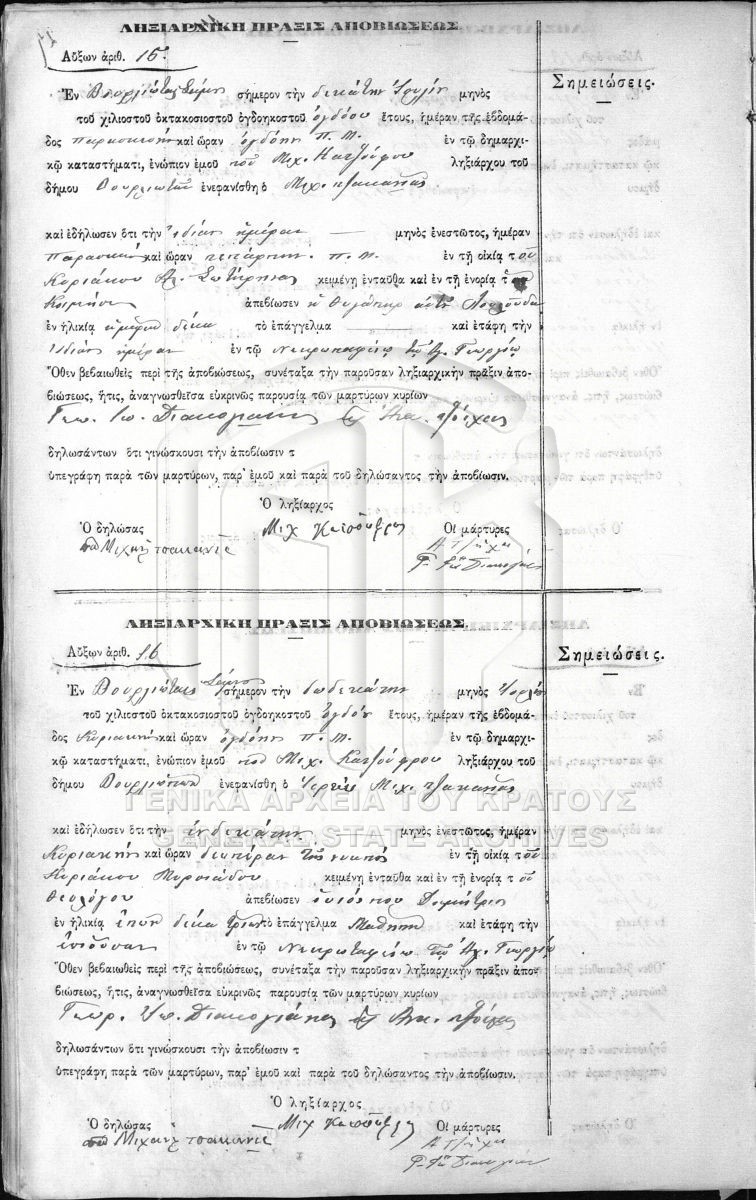 ΛΗΞΙΑΡΧΙΚΗ ΠΡΑΞΙΣ ΑΠΟΒΙΩΣΕΩΣ.
Αὔξων ἀριθ. 15.
Σημειώσεις.
Ἐν Βουρλιώταις Σάμου σήμερον τὴν δεκάτην Ἰουλίου μηνὸς
τοῦ χιλιοστοῦ ὀκτακοσιοστοῦ ὀγδοηκοστοῦ ὀγδόου ἔτους, ἡμέραν τῆς ἑβδομά-
δος Παρασκευὴν καὶ ὥραν ὀγδόην π. μ. ἐν τῷ δημαρχι-
κῷ καταστήματι, ἐνώπιον ἐμοῦ τοῦ Μιχ. Κατζούφρου ληξιάρχου τοῦ
δήμου Βουρλιωτῶν ἐνεφανίσθη ὁ Μιχ. Τζακανιάς
καὶ ἐδήλωσεν ὅτι τὴν ἰδίαν ἡμέραν μηνὸς ἐνεστῶτος, ἡμέραν
Παρασκευὴν καὶ ὥραν τετάρτην π. μ. ἐν τῇ οἰκίᾳ τοῦ
Κυριάκου κειμένῃ ἐνταῦθα καὶ ἐν τῇ ἐνορίᾳ τ
ἀπεβίωσεν ἡ θυγάτηρ αὐτοῦ
ἐν ἡλικίᾳ ἡμερῶν δέκα τὸ ἐπάγγελμα καὶ ἐτάφη τὴν
ἰδίαν ἡμέραν ἐν τῷ Νεκροταφείῳ τοῦ Ἁγ. Γεωργίου
Ὅθεν βεβαιωθεὶς περὶ τῆς ἀποβιώσεως, συνέταξα τὴν παροῦσαν ληξιαρχικὴν πρᾶξιν ἀπο-
βιώσεως, ἥτις, ἀναγνωσθεῖσα εὐκρινῶς παρουσίᾳ τῶν μαρτύρων κυρίων
Γεωρ. Ἰω. Διακογιάννης
δηλωσάντων ὅτι γινώσκουσι τὴν ἀποβίωσιν τ
ὑπεγράφη παρὰ τῶν μαρτύρων, παρ' ἐμοῦ καὶ παρὰ τοῦ δηλώσαντος τὴν ἀποβίωσιν.
Ὁ ληξίαρχος
Ὁ δηλώσας Μιχ Κατσούφρης Οἱ μάρτυρες
Μιχαὴλ τσακανιας
ΛΗΞΙΑΡΧΙΚΗ ΠΡΑΞΙΣ ΑΠΟΒΙΩΣΕΩΣ.
Αὔξων ἀριθ. 16
Σημειώσεις.
Ἐν Βουρλιώταις Σάμου σήμερον τὴν δωδεκάτην μηνὸς Ἰουλίου
τοῦ χιλιοστοῦ ὀκτακοσιοστοῦ ὀγδοηκοστοῦ ὀγδόου ἔτους, ἡμέραν τῆς ἑβδομά-
δος Κυριακὴν καὶ ὥραν ὀγδόην π. μ. ἐν τῷ δημαρχι-
κῷ καταστήματι, ἐνώπιον ἐμοῦ τοῦ Μιχ. Κατζούφρου ληξιάρχου τοῦ
δήμου Βουρλιωτῶν ἐνεφανίσθη ὁ Ἱερεὺς Μιχ. Τζακανιάς
ΓΕΝΙΚΑ ΑΡΧΕΙΑ ΤΟΥ ΚΡΑΤΟΥΣ
GENERAL STATE ARCHIVES
καὶ ἐδήλωσεν ὅτι τὴν ἑνδεκάτην μηνὸς ἐνεστῶτος, ἡμέραν
Κυριακῆς καὶ ὥραν δευτέραν τῆς νυκτὸς ἐν τῇ οἰκίᾳ τοῦ
Κυριάκου κειμένῃ ἐνταῦθα καὶ ἐν τῇ ἐνορίᾳ τοῦ
Θεολόγου ἀπεβίωσεν ὁ υἱός του Δημήτριος
ἐν ἡλικίᾳ ἐτῶν δέκα τριῶν τὸ ἐπάγγελμα Μαθητὴς καὶ ἐτάφη τὴν
ἐπιοῦσαν ἐν τῷ Νεκροταφείῳ τοῦ Ἁγ. Γεωργίου
Ὅθεν βεβαιωθεὶς περὶ τῆς ἀποβιώσεως, συνέταξα τὴν παροῦσαν ληξιαρχικὴν πρᾶξιν ἀπο-
βιώσεως, ἥτις, ἀναγνωσθεῖσα εὐκρινῶς παρουσίᾳ τῶν μαρτύρων κυρίων
Γεωρ. Ἰω. Διακογιάννης
δηλωσάντων ὅτι γινώσκουσι τὴν ἀποβίωσιν τ
ὑπεγράφη παρὰ τῶν μαρτύρων, παρ' ἐμοῦ καὶ παρὰ τοῦ δηλώσαντος τὴν ἀποβίωσιν.
Ὁ ληξίαρχος
Ὁ δηλώσας Μιχ Κατσούφρης Οἱ μάρτυρες
Μιχαὴλ τσακανιας